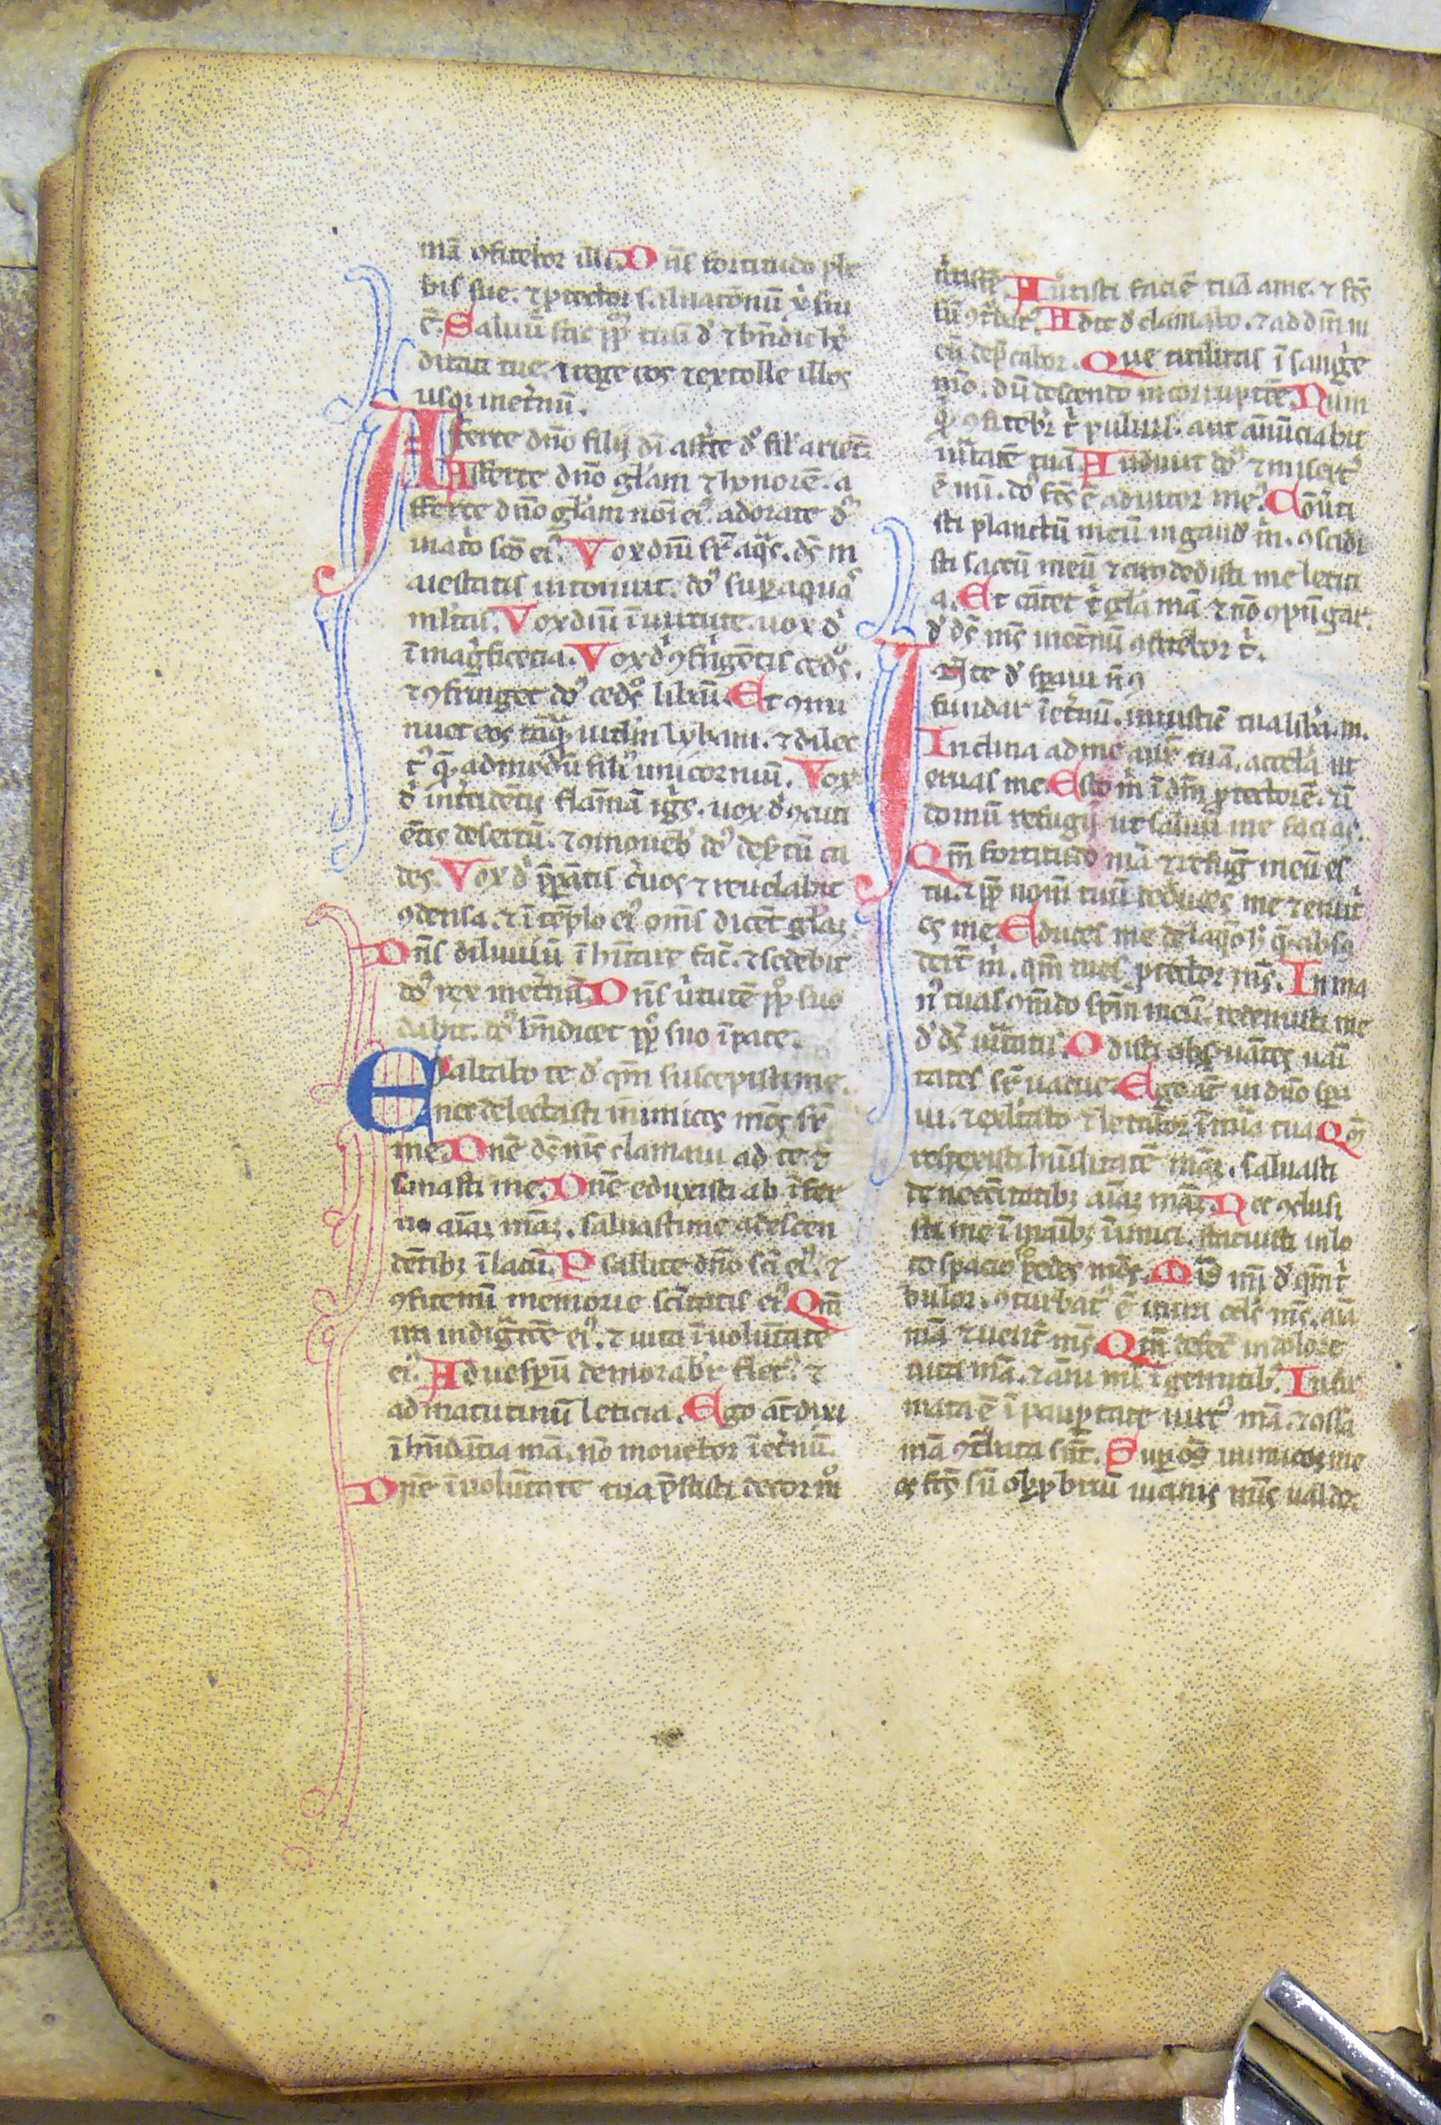 mā ꝯfitebor illi. Dn̄s fortitudo ple
bis sue. ⁊ ꝓtector saluac̄onū xp̄i sui
ē. Saluū fac ppl̄m tuū d̓ ⁊ bn̄dic he
ditati tue. ⁊ rege eos ⁊ extolle illos
usqꝫ inet̓nū.
Afferte dn̄o filij di afferte d̓ fil̓ arietū
Afferte dn̄o glām ⁊ honorē. a
fferte dn̄o glām noī ei᾽. adorate d̓
in at̓o sc̄o ei᾽. Vox dn̄i sr̄ aq̄s. ds̄ m
aiestatis intonuit. do᾽ suꝑ aquas
ml̓tas. Vox dn̄i ī uirtute. uox d̓
ī mag̓ficēcia. Vox d̓ ꝯfrīgētis cedr̄os.
⁊ ꝯfringet do᾽ cedr̄os libani. Et ꝯmi
nuet eos tāq̄ uitl̄m lybani. ⁊ dilec
t᾽ q̄. admodū fili᾽ unicorniū. Vox
d̓ int̓cidētis flāmā ignis. uox d̓ ꝯcuti
ētis desertū. ⁊ ꝯmoueb᾽ do᾽ desertū ca
des. Vox d̓ p̄parātis c̓uos ⁊ reuelabit
ꝯdensa. ⁊ ī tēplo ei᾽ om̄s dicēt glām
Dn̄s diluuiū īhītare fac̄. ⁊ sedebit
do᾽ rex inet̓nū. Dn̄s u̓tutē pplo᾽ suo
dabit. do᾽ bn̄dicet pplo᾽ suo ī pace.
Exaltabo te d̓ qm̄ suscepisti me.
nec delectasti inimicos meos sr̄
me. Dn̄e ds̄ ms̄ clamaui ad te ⁊
sanasti me. Dn̄e eduxisti ab īfer
no aīaꝫ māꝫ. saluasti me a descen
dētibꝫ ī lacū. Psallite dn̄o sc̄i ei᾽. ⁊
ꝯfitemī memorie sc̄itatis ei᾽. Qm̄
ira indig̓tōe ei᾽. ⁊ uita ī uolūtate
ei᾽. Ad uesꝑū demorabr̄ flet᾽. ⁊
ad matutinū leticia. Ego at̄ dixi
ī hn̄dātia mā. no mouebor īet̓nū.
Dn̄e ī uolūtate tua p̄stisti decori mo᾽
u̓tutē. Au̓tisti faciē tuā a me. ⁊ fc̄s
sū ꝯt̓bat᾽. Ad te d̓ clamabo. ⁊ ad dm̄ m
eū dep̄cabor. Que utilitas ī sang̓e
mo᾽. dū descendo in corruptōē. Num
q̓ ꝯfitebr̄ t̓ puluis. aut ānūciabit
u̓itatē tuā. Audiuit do᾽ ⁊ misert᾽
ē mī. do᾽ fc̄s ē adiutor me᾽. Conu̓ti
sti planctū meū in gaud᾽ m̓. ꝯscidi
sti saccū meū ⁊ circūdedisti me letici
a. Et cātet t̓ glā mā ⁊ nō ꝯpūgar.
d̓ ds̄ ms̄ inet̓nū ꝯfitebor t̓.
In te d̓ sꝑaui n̄ ꝯ
fundar īet̓nū. in iustiē tua libā. m.
Inclina ad me aurē tuā. accel̓a ut
eruas me. Esto m̓ ī dm̄ ꝓtectorē. ⁊ ī
domū refugij ut saluū me facias.
Qm̄ fortitudo mā ⁊ refug̓ meū es
tu. ⁊ ꝓp nom̄ tuū deduces me ⁊ enut̓
es me. Educes me de laq̓o h̓ q̄ absco
derūt m̓. qm̄ tu es ꝓtector ms̄. In ma
n᾽ tuas ꝯm̄do spm̄ meū. redemisti me
d̓ ds̄ u̓itatis. Odisti obs̓uātes uani
tates sr̄ uacue. Ego at̄ in dn̄o sꝑa
ui. ⁊ exl̓tabo ⁊ letabor ī mīa tua. Qm̄
respexisti hūilitatē māꝫ. saluasti
de necēitatibꝫ aīaꝫ māꝫ. Nec ꝯclusi
sti me ī manibꝫ inimici. statuisti in lo
co spacio᾽ pedes meos. Mis̄ mī d̓ qm̄ t̓
bulor. ꝯturbat᾽ ē in ira ocl̓s ms̄. aīa
mā ⁊ uent̓ ms̄. Qm̄ defec̄ in dolore
uita mā. ⁊ āni mī ī gemitibꝫ. Infir
mata ē ī pauꝑtate uirt᾽ mā. ⁊ ossa
mā ꝯt̓bata sūt. Suꝑ oēs inimicos me
os fc̄s sū obꝓbriū uicinis meis ualde.